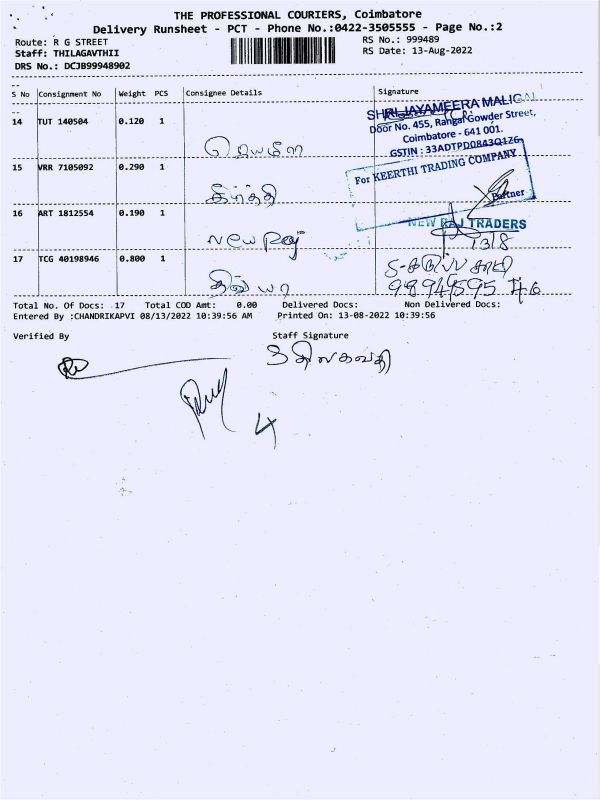 THE PROFESSIONAL COURIERS, Coimbatore
Delivery Runsheet - PCT - Phone No.:0422-3505555 - Page No.:2
Route: R G STREET
RS No.: 999489
Staff: THILAGAVTHII
RS Date: 13-Aug-2022
DRS No.: DCJB99948902
S No Consignment No Weight PCS Consignee Details Signature
14 TUT 140504 0.120 1
SHRI JAYAMEERA MALIGAI
Door No. 455, Rangai Gowder Street,
Coimbatore - 641 001.
GSTIN : 33ADTPD0843Q1Z6
ஜெயமீரா
15 VRR 7105092 0.290 1
For KEERTHI TRADING COMPANY
Partner
கீர்த்தி
16 ART 1812554 0.190 1
NEW RAJ TRADERS
13/8
New Raj
17 TCG 40198946 0.800 1
திவ்யா
Total No. Of Docs: 17 Total COD Amt: 0.00 Delivered Docs: Non Delivered Docs:
Entered By :CHANDRIKAPVI 08/13/2022 10:39:56 AM Printed On: 13-08-2022 10:39:56
Verified By Staff Signature
திலகவதி
4